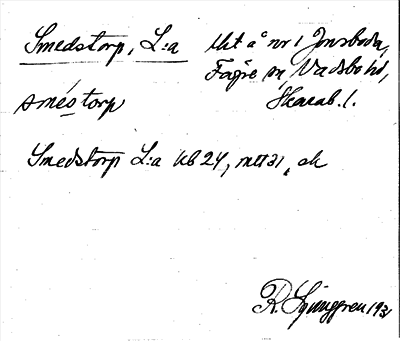 Smedstorp, L:a
Uht å nr 1 Jonsboda,
Fägre sn, Vadsbo hd,
Skarab. l.
smésto̲rp
Smedstorp L:a Kb 24, mtl 31, ek
R. Ljunggren 1931